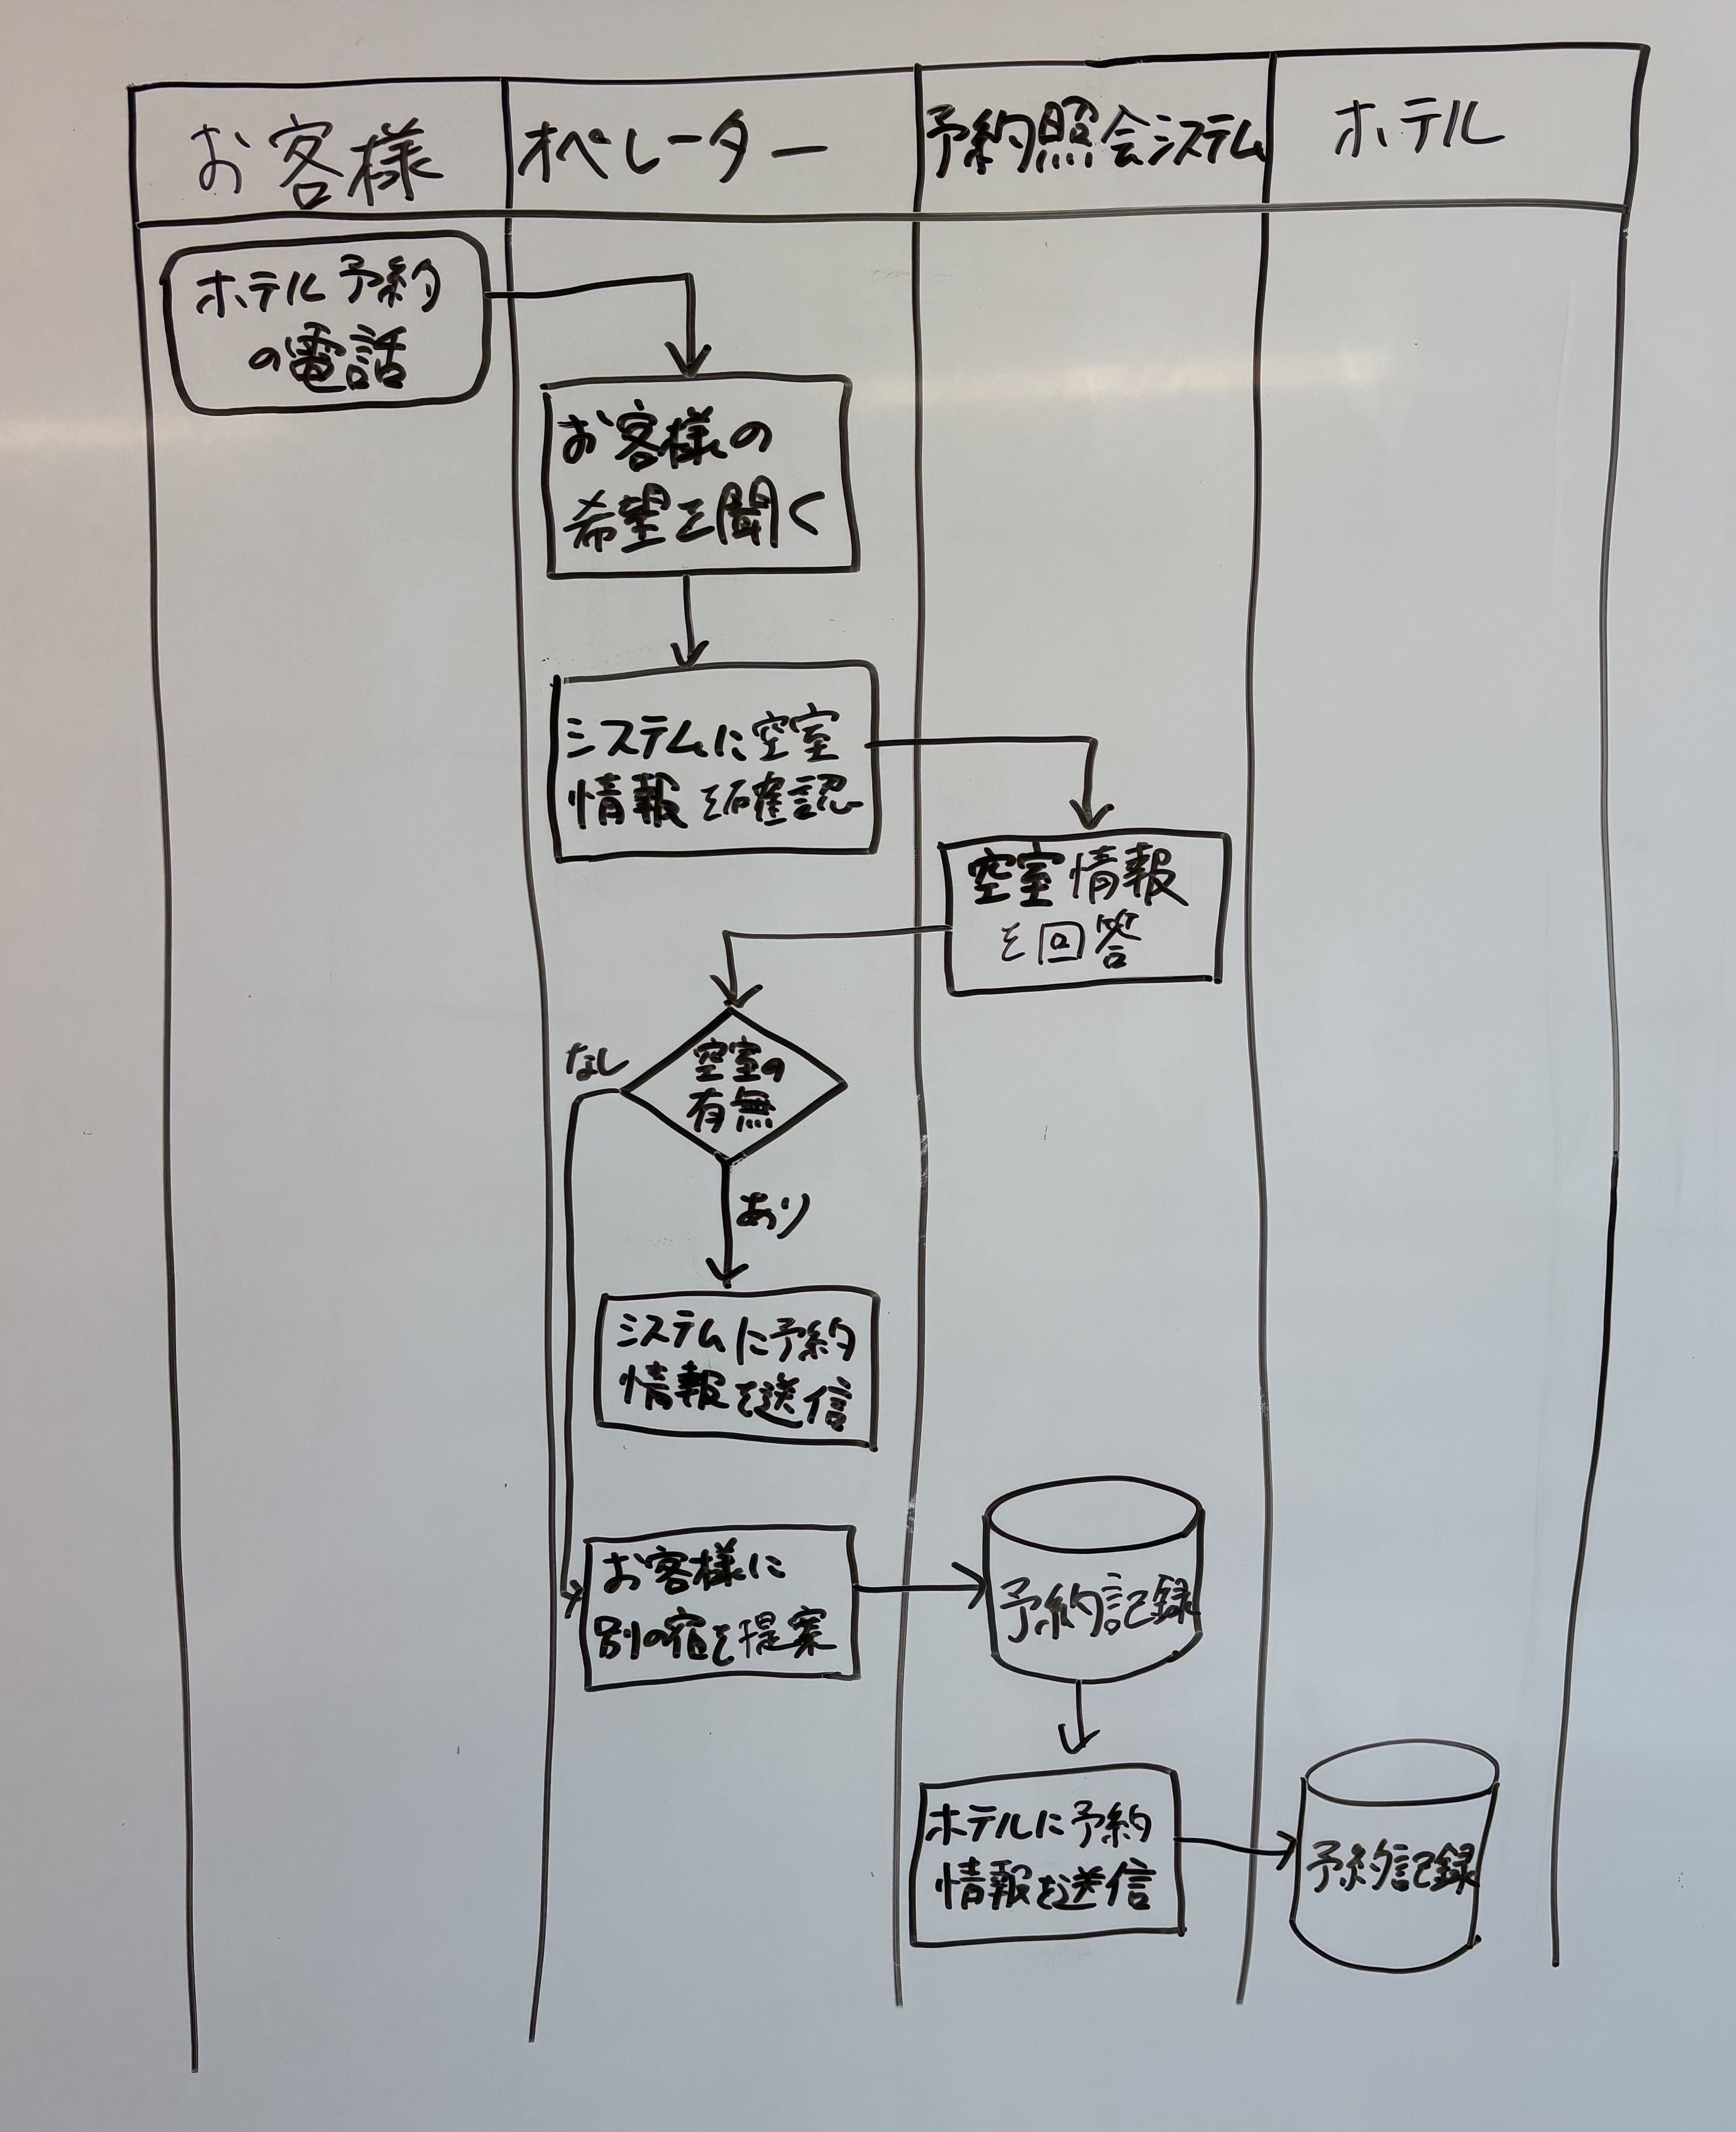 お客様
オペレーター
予約照会システム
ホテル
ホテル予約
の電話
お客様の
希望を聞く
システムに空室
情報を確認
空室情報
を回答
空室の
有無
なし
あり
システムに予約
情報を送信
お客様に
別の宿を提案
予約記録
ホテルに予約
情報を送信
予約記録